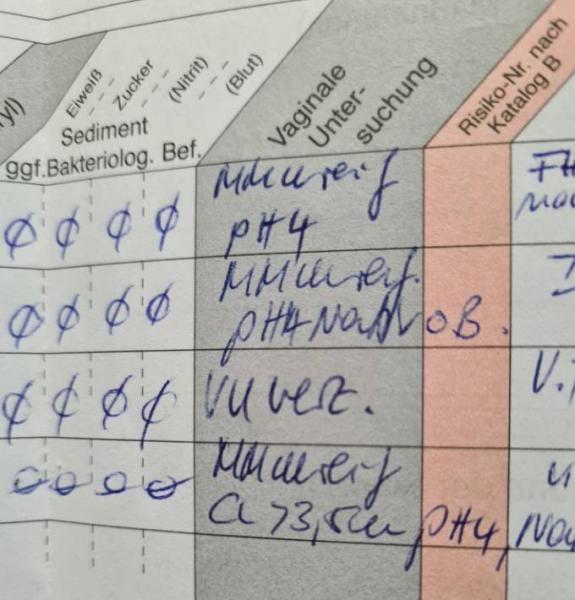 Eiweiß
Zucker
(Nitrit)
(Blut)
Sediment
ggf. Bakteriolog. Bef.
Vaginale
Unter-
suchung
Risiko-Nr. nach
Katalog B
MM unreif
ø ø ø ø pH 4
MM unreif.
ø ø ø ø pH4 Nativ o B.
ø ø ø ø VU verz. V.
MM unreif
ø ø ø ø Cl >3,5cm pH4,